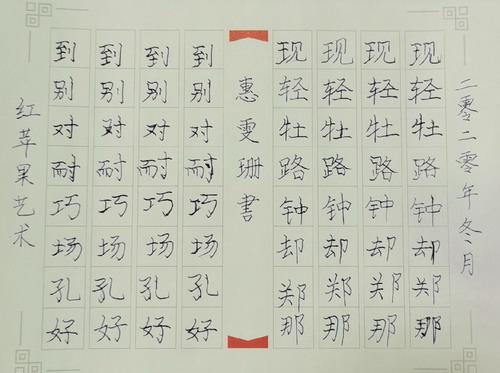 二零二零年冬月
现轻牡路钟却郑那
现轻牡路钟却郑那
现轻牡路钟却郑那
现轻牡路钟却郑那
惠雯珊書
到别对耐巧场孔好
到别对耐巧场孔好
到别对耐巧场孔好
到别对耐巧场孔好
红苹果艺术